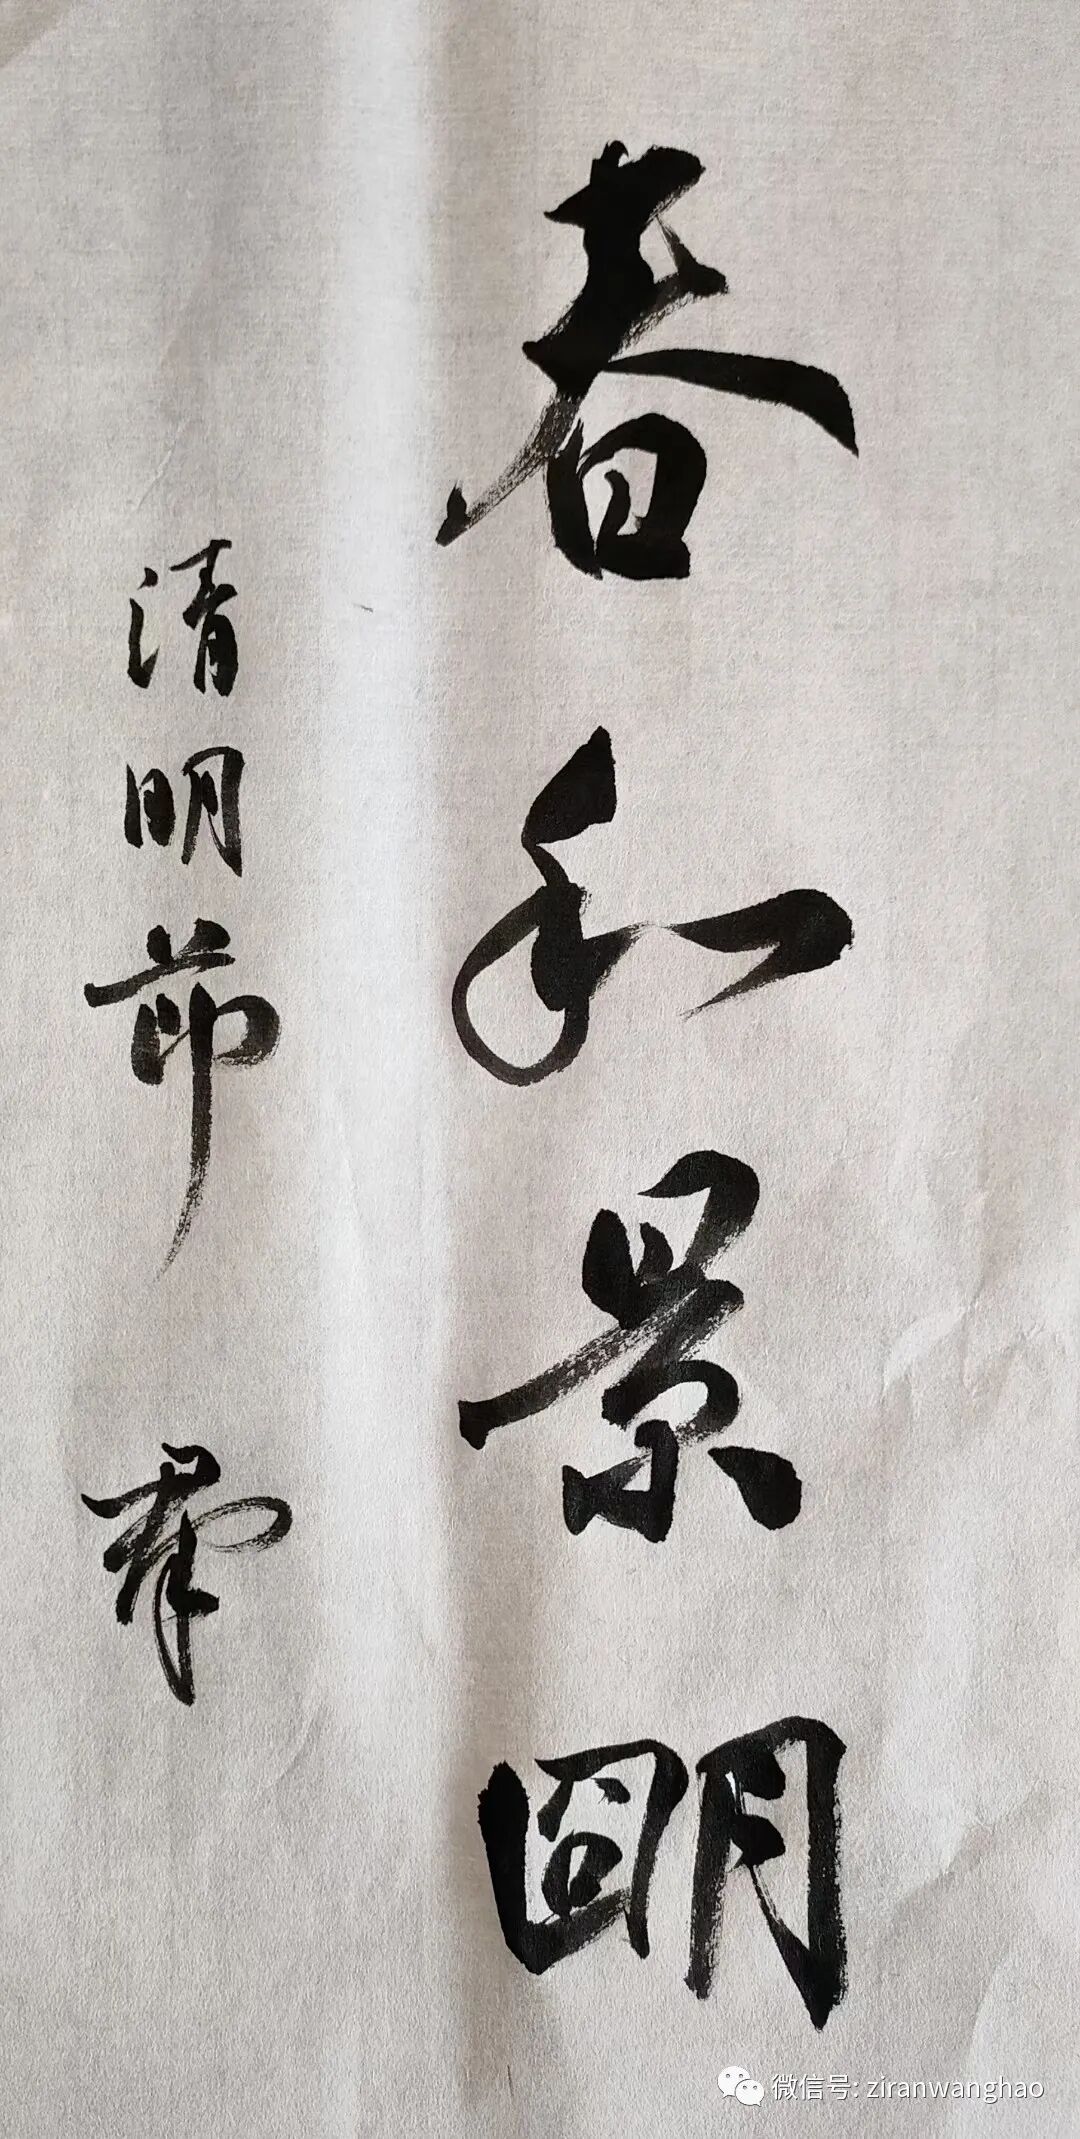 春和景明
清明节 群
微信号: ziranwanghao